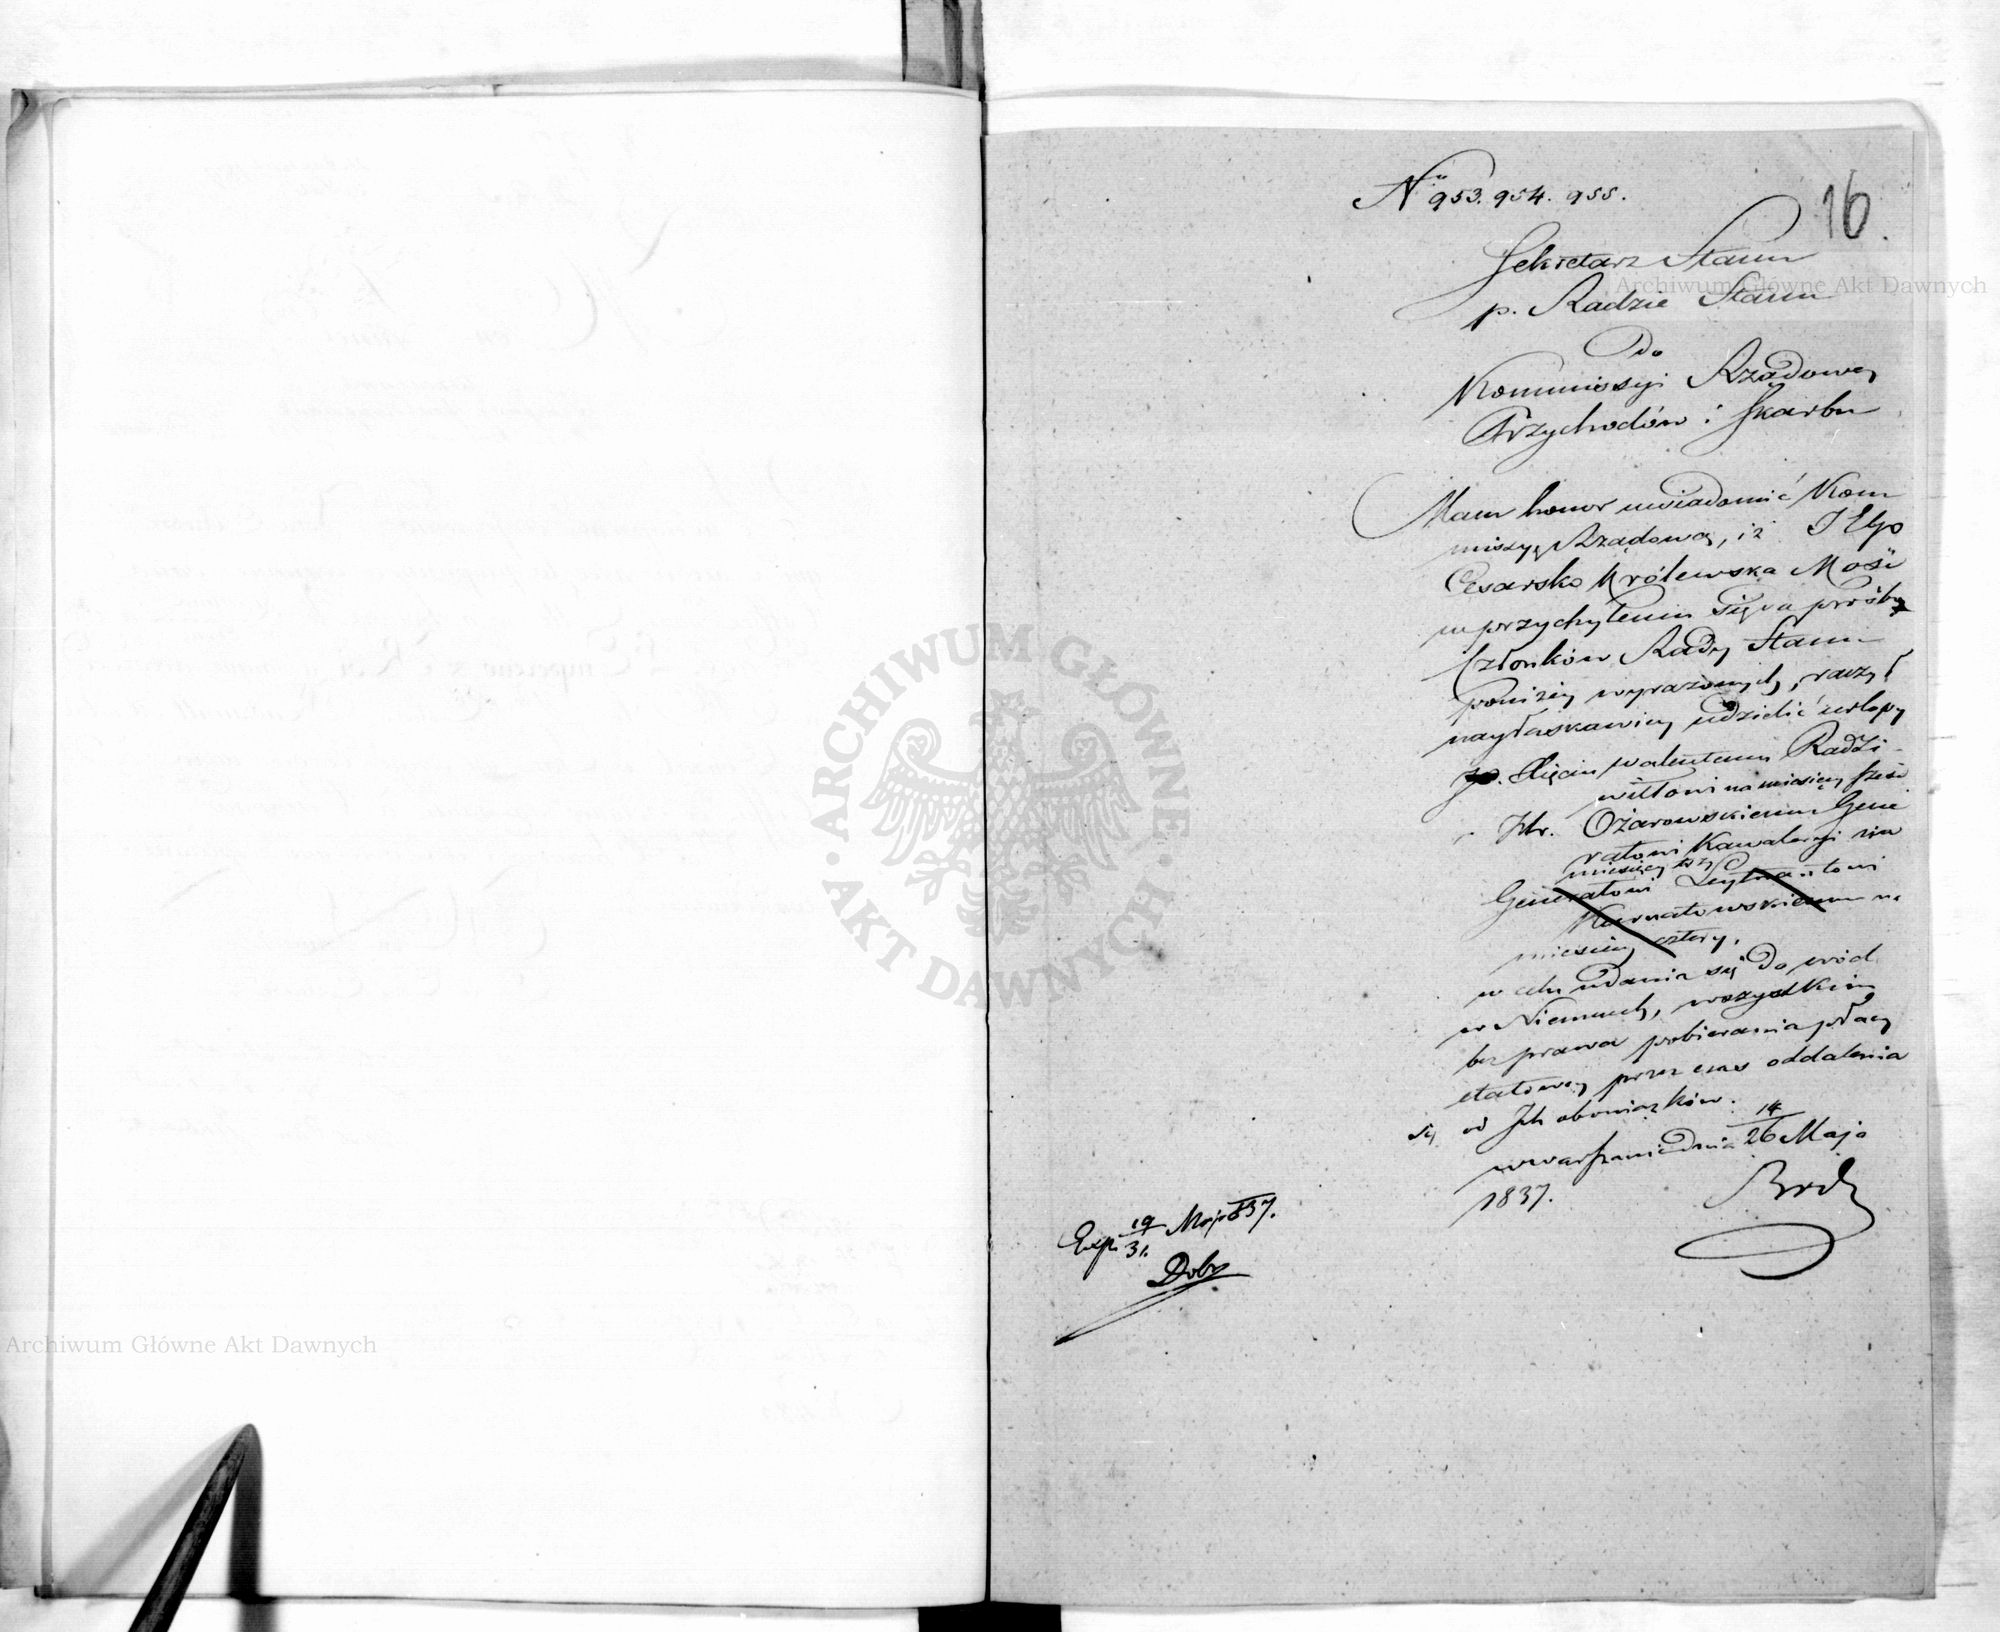 No 953. 954. 955.
16.
Sekretarz Stanu
p. Radzie Stanu
Do
Kommissyi Rządowey
Przychodów i Skarbu
Mam honor uwiadomić Kom
missyę Rządową, iż
Cesarsko Królewska Mość
w przychyleniu się na prośby
Członków Rady Stanu
poniżey wyrażonych, raczył
nayłaskawiey udzielić urlopy
Xięciu Walentemu Radzi-
wiłłowi na miesięcy sześć
Hr. Ożarowskiemu Gene
rałowi Kawaleryi na
miesięcy trzy
Generałowi Leytnantowi
Kurnatowskiemu na
miesięcy cztery,
w celu udania się do wód
w Niemczech, wszystkim
bez prawa pobierania płacy
etatowey przez czas oddalenia
się od Ich obowiązków.
w Warszawie dnia 14/26 Maja
1837.
Exp. 19/31. Maja 837.
Archiwum Główne Akt Dawnych
ARCHIWUM GŁÓWNE AKT DAWNYCH
Archiwum Główne Akt Dawnych